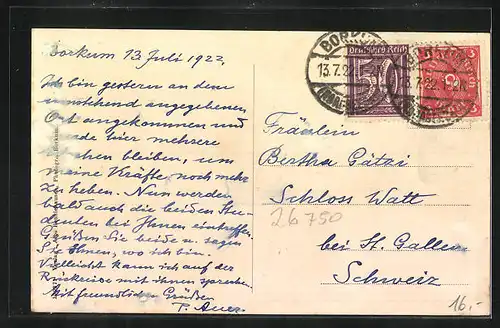 Borkum 13 Juli 1922
Ich bin gestern an dem
umstehend angegebenen
Ort angekommen und
hier mehrere
bleiben, um
meine Kräfte noch mehr
zu heben. Nun werden
bald auch die beiden Stu-
denten bei Ihnen eintreffen.
Grüßen Sie beide u. sagen
Sie Ihnen, wo ich bin.
Vielleicht kann ich auf der
Rückreise mit ihnen sprechen.
Mit freundlichen Grüßen
P. Auer.
Deutsches Reich
50
13.7.22
Fräulein
Bertha Gätzi
Schloss Watt
26750
bei St. Gallen
Schweiz
16.-